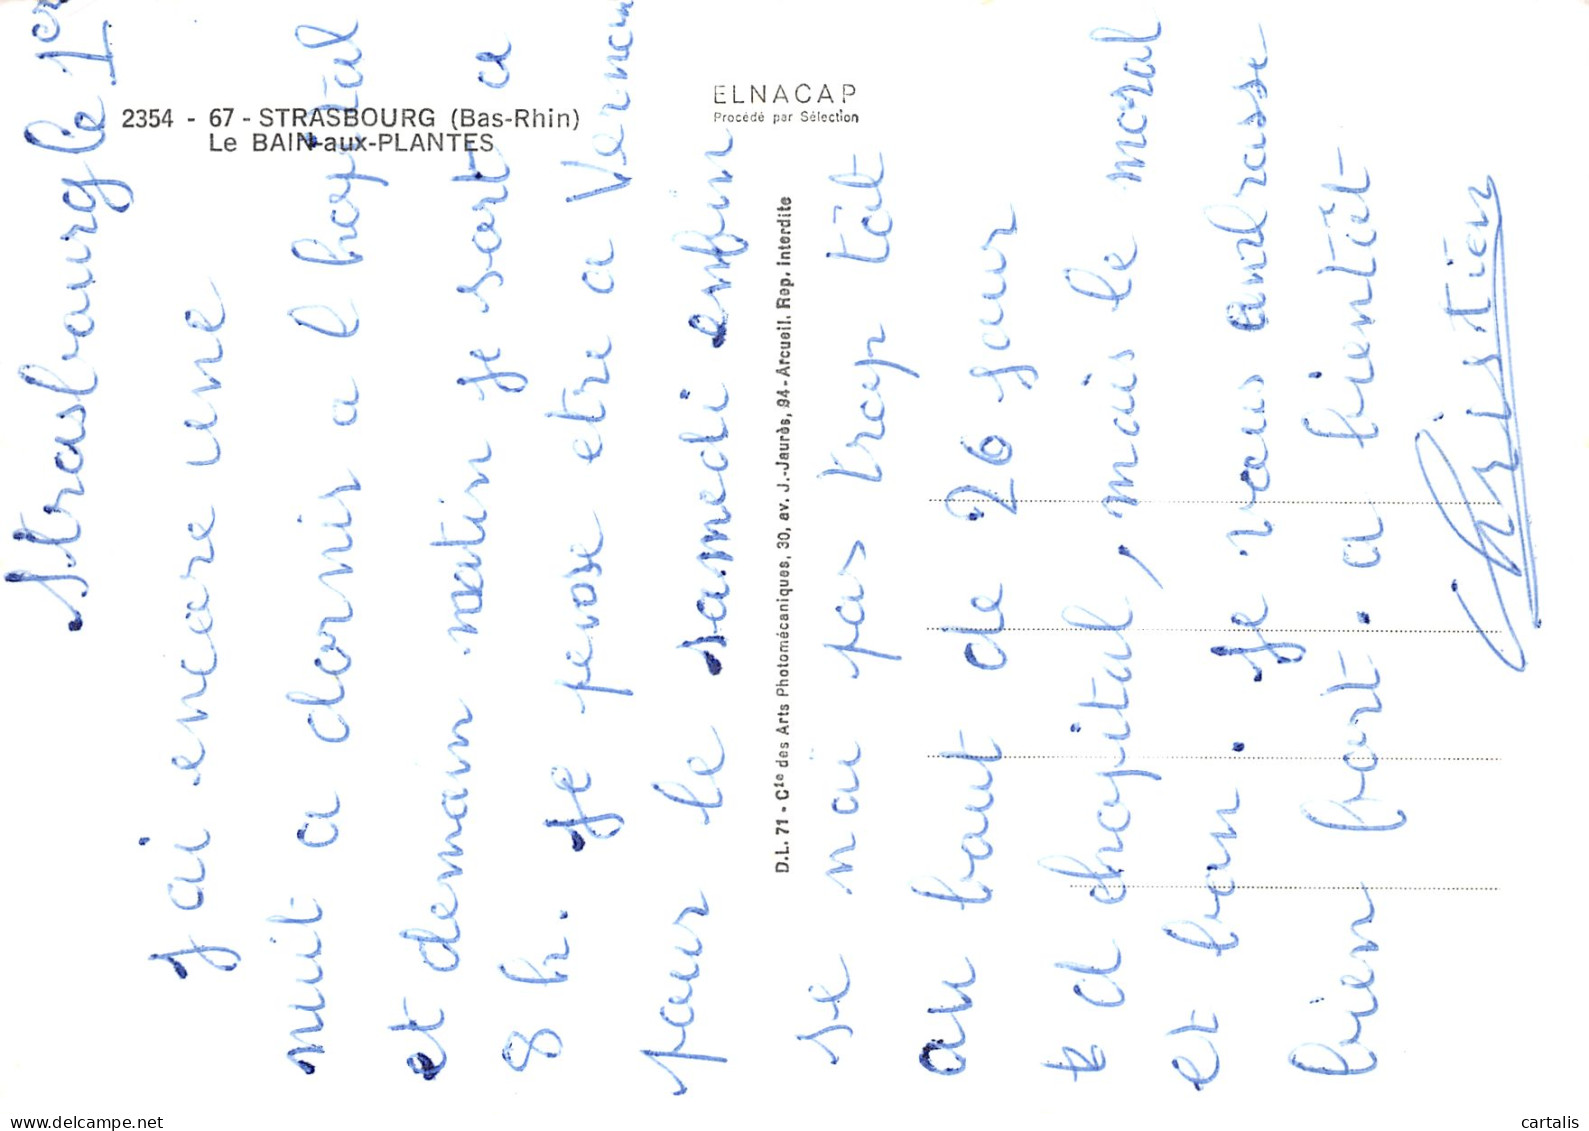 2354 - 67 - STRASBOURG (Bas-Rhin)
Le BAIN-aux-PLANTES
ELNACAP
Procédé par Sélection
D.L. 71 - Cie des Arts Photomécaniques, 30, av. J.-Jaurès, 94 - Arcueil. Rep. interdite
Strasbourg le 1er
J'ai encore une
nuit a dormir a l hopital
et demain matin je sort a
8 h. Je pense etre a
pour le samedi enfin
se n'ai pas trop tôt
au bout de 26 jour
d hopital, mais le moral
et bon. Je vous ambrasse
bien fort. a bientôt
Christien
www.delcampe.net
cartalis